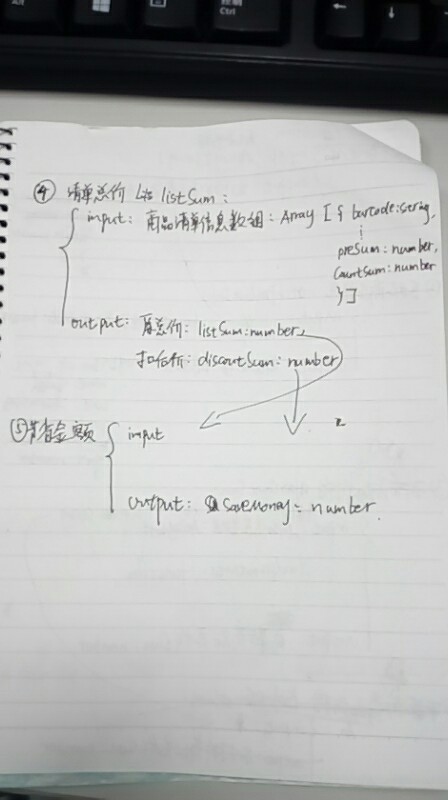 Ctrl
④ 清单总价 listSum:
input: 商品清单信息数组: Array [{ barcode:string,
⋮
preSum: number,
countSum: number
}]
output: 原总价: listSum:number,
扣后价: discoutSum: number
⑤ 节省金额 input
output: saveMoney: number.